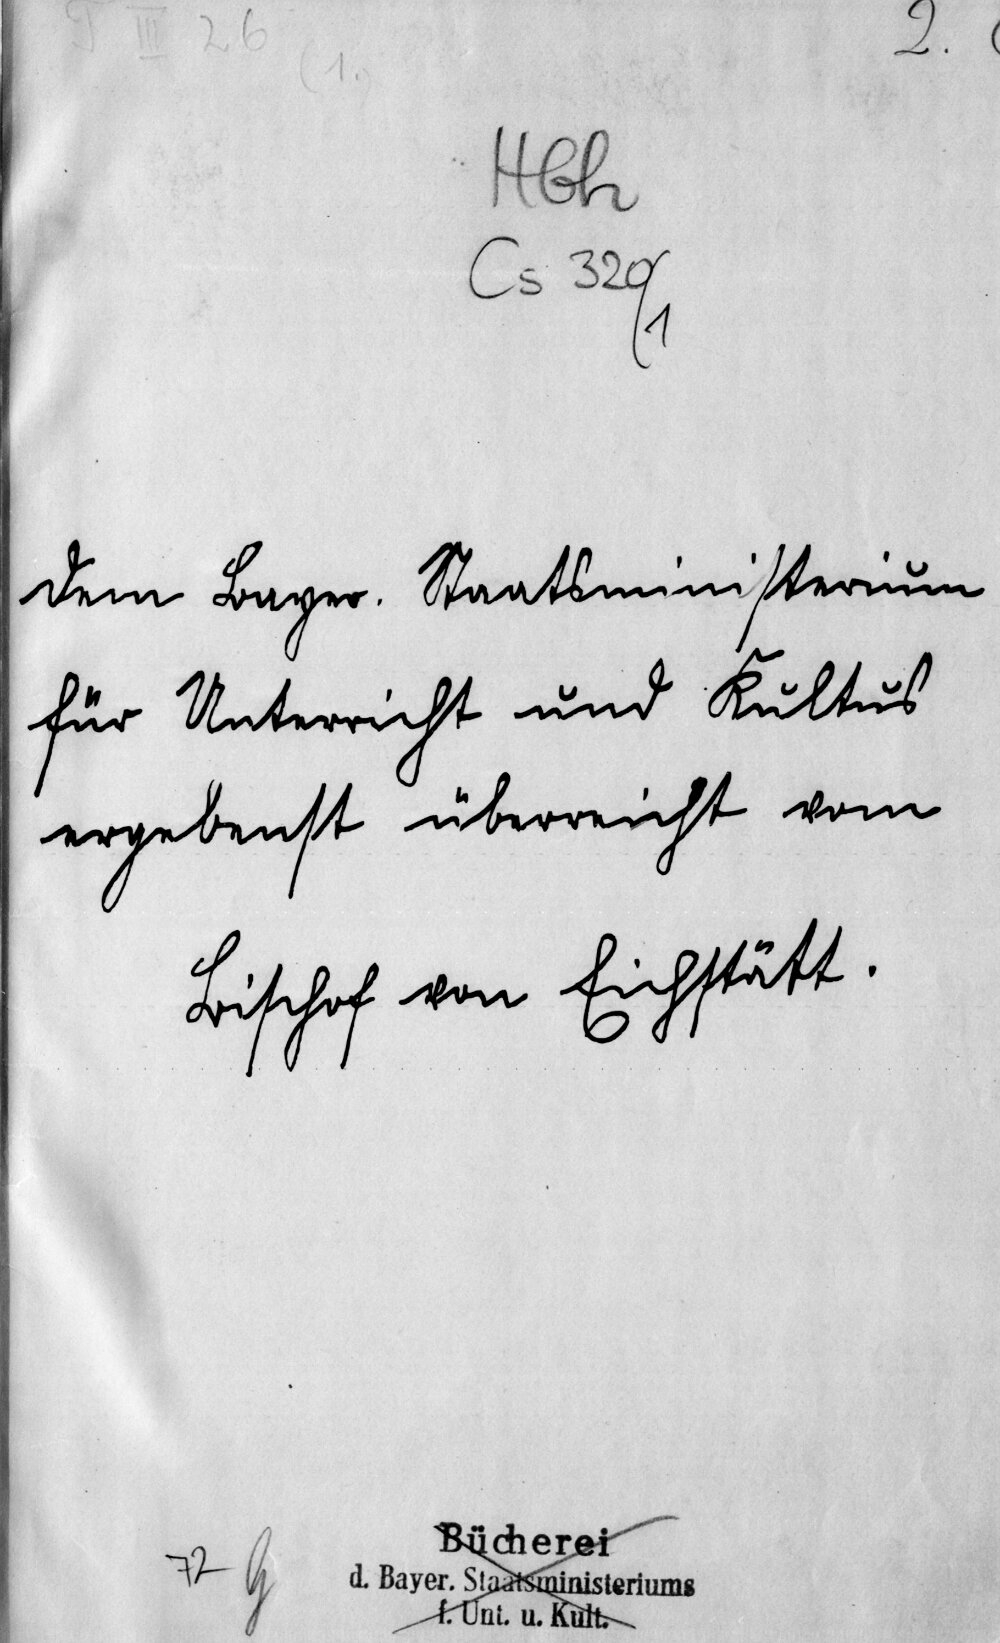 T III 26
(1.)
2.
Hbh
Cs 320/1
Dem Bayer. Staatsministerium
für Unterricht und Kultus
ergebenst überreicht vom
Bischof von Eichstätt.
72
Bücherei
d. Bayer. Staatsministeriums
f. Unt. u. Kult.